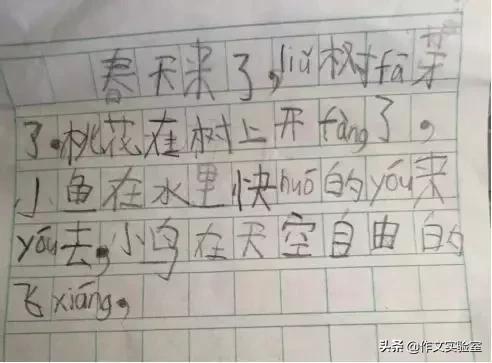 春天来了,liǔ树fā芽
了。桃花在树上开fàng了,
小鱼在水里快huó的yóu来
yóu去,小鸟在天空自由的
飞xiáng。
头条 @作文实验室